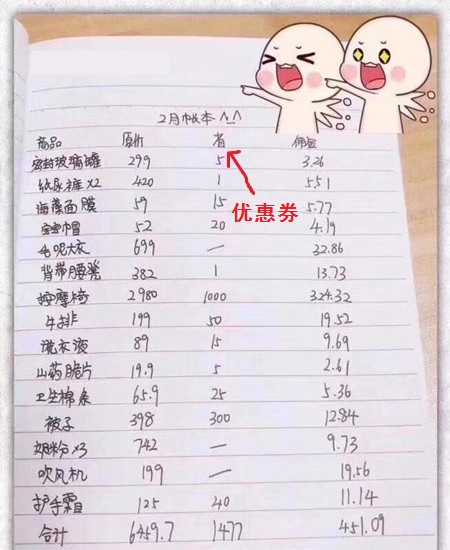 2月帐本 ^_^
商品 原价 省 佣金
密封玻璃罐 29.9 5 3.26
纸尿裤x2 420 1 5.51
海藻面膜 59 15 5.77
优惠券
宝宝帽 52 20 4.19
毛呢大衣 699 — 32.86
背带腰凳 382 1 13.73
按摩椅 2980 1000 324.32
牛排 199 50 19.52
洗衣液 89 15 9.69
山药脆片 19.9 5 2.61
卫生棉条 65.9 25 5.36
被子 398 300 12.84
奶粉x3 742 — 9.73
吹风机 199 — 19.56
护手霜 125 40 11.14
合计 6459.7 1477 451.09